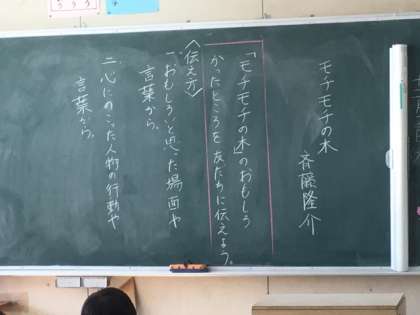 モチモチの木
斉藤隆介
「モチモチの木」のおもしろ
かったところを友だちに伝えよう。
〈伝え方〉
一、おもしろいと思った場面や
言葉から。
二、心にのこった人物の行動や
言葉から。